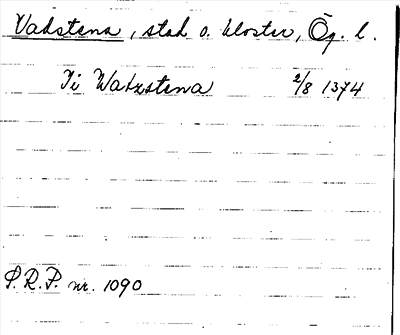 Vadstena, stad o. kloster, Ög. l.
Ti Watzstena 2/8 1374
S.R.P. nr. 1090